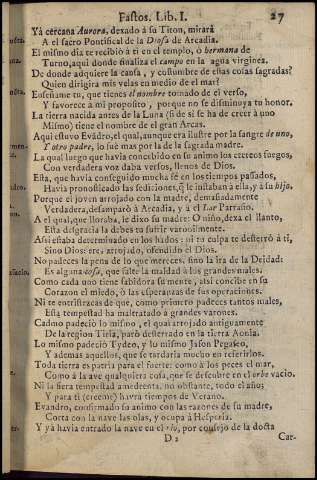 Fastos. Lib. I. 27
Yà cercana Aurora, dexado à su Titon, mirarà
A el sacro Pontifical de la Diosa de Arcadia.
El mismo dia te recibiò à ti en el templo, ò hermana de
Turno, aqui donde finaliza el campo en la agua virginea.
De donde adquiere la causa, y costumbre de estas cosas sagradas?
Quien dirigira mis velas en medio de el mar?
Enseñame tu, que tienes el nombre tomado de el verso,
Y favorece à mi proposito, porque no se disminuya tu honor.
La tierra nacida antes de la Luna (si de sì se ha de creer à uno
Mismo) tiene el nombre de el gran Arcas.
Aqui estuvo Evádro, el qual, aunque era ilustre por la sangre de uno,
Y otro padre, lo fuè mas por la de la sagrada madre.
La qual luego que havia concebido en su animo los etereos fuegos,
Con verdadera voz daba versos, llenos de Dios.
Esta, que havia conseguido mucha fè en los tiempos passados,
Havia pronosticado las sediciones, q̃ le instaban à ella, y à su hijo.
Porque el joven arrojado con la madre, demasiadamente
Verdadera, desamparò à Arcadia, y à el Lar Parrasio.
A el qual, que lloraba, le dixo su madre: O niño, dexa el llanto,
Esta desgracia la debes tu sufrir varonilmente.
Assi estaba determinado en los hados: ni tu culpa te desterrò à ti,
Sino Dios: eres arrojado, ofendido el Dios.
No padeces la pena de lo que mereces, sino la ira de la Deidad:
Es alguna cosa, que falte la maldad à los grandes males.
Como cada uno tiene sabidora su mente, assi concibe en su
Corazon el miedo, ò las esperanzas de sus operaciones.
Ni te entristezcas de que, como primero padeces tantos males,
Esta tempestad ha maltratado à grandes varones.
Cadmo padeciò lo mismo, el qual arrojado antiguamente
De la region Tiria, parò desterrado en la tierra Aonia.
Lo mismo padeciò Tydeo, y lo mismo Jason Pegaseo,
Y ademas aquellos, que se tardaria mucho en referirlos.
Toda tierra es patria para el fuerte: como à los peces el mar,
Como à la ave qualquiera cosa, que se descubre en el orbe vacio.
Ni la fiera tempestad amedrenta, no obstante, todo el año;
Y para ti (creeme) havrà tiempos de Verano.
Evandro, confirmado su animo con las razones de su madre,
Corta con la nave las olas, y ocupa à Hesperia.
Y yà havia entrado la nave en el rio, por consejo de la docta
D 2 Car-